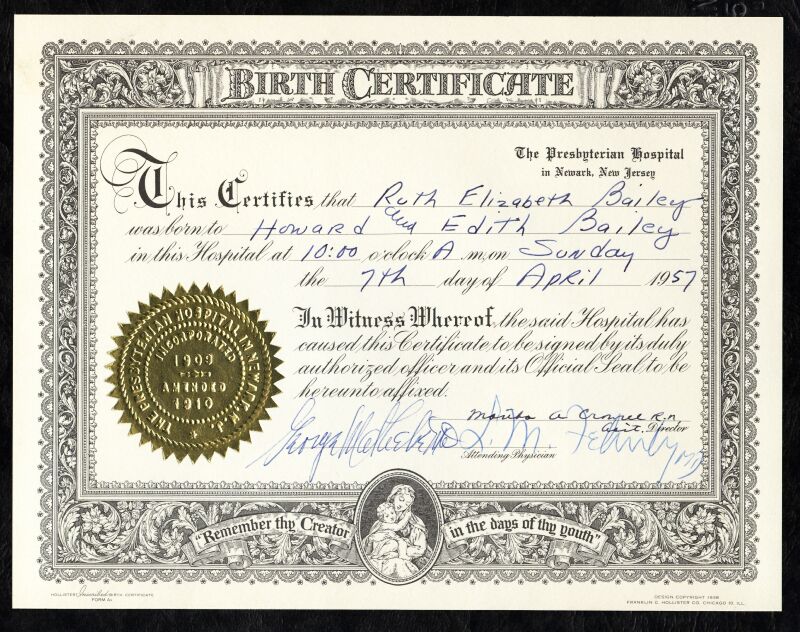 BIRTH CERTIFICATE
The Presbyterian Hospital
in Newark, New Jersey
This Certifies that Ruth Elizabeth Bailey
was born to Howard and Edith Bailey
in this Hospital at 10:00 o'clock A.m. on Sunday
the 7th day of April 1957
In Witness Whereof, the said Hospital has
caused this Certificate to be signed by its duly
authorized officer and its Official Seal to be
hereunto affixed.
THE PRESBYTERIAN HOSPITAL IN NEWARK N.J.
INCORPORATED
1909
AMENDED
1910
A R.n.
Asst. Director
George MD L. M. MD
Attending Physician
"Remember thy Creator in the days of thy youth"
HOLLISTER Inscribed BIRTH CERTIFICATE
FORM A
DESIGN COPYRIGHT 1938
FRANKLIN C. HOLLISTER CO. CHICAGO 10, ILL.